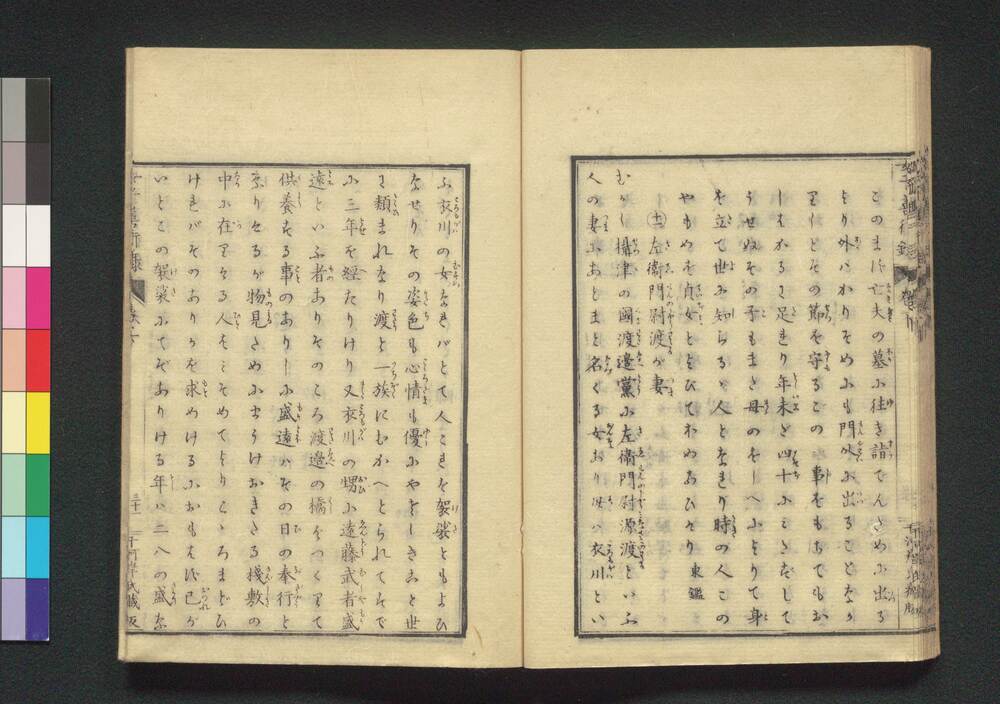 このまに亡夫の墓に往き詣でんために出る
より外はかりそめにも門外に出ることなか
りしとその節を守るこの事をもちてもお
しはかるに足れり年未だ四十にこえずして
うせぬその子もまた母のをしへによりて身
を立て世に知らるゝ人となれり時の人この
やもめを貞女とよびてわゐひけり 東鑑
十一 左衛門尉渡が妻
むかし攝津の國渡邉黨に左衛門尉源渡といふ
人の妻にあとまと名くる女あり母は衣川とい
ふ衣川の女なればとて人これを袈裟ともよひ
なせりその姿色も心情も優にやさしきゝと世
に類まれなり渡と一族にむかへとられてすで
に三年を経たりけり又衣川の甥に遠藤武者盛
遠といふ者ありそのころ渡邉の橋をつくりて
供養する事のありしに盛遠はその日の奉行と
なりけるが物見のためにまうけおきたる棧敷の
中に在りける人をみそめてよりこゝろまどひ
ければそのありかを求めけるにおもはず己が
いとこの袈裟にてぞありける年は二八の盛な